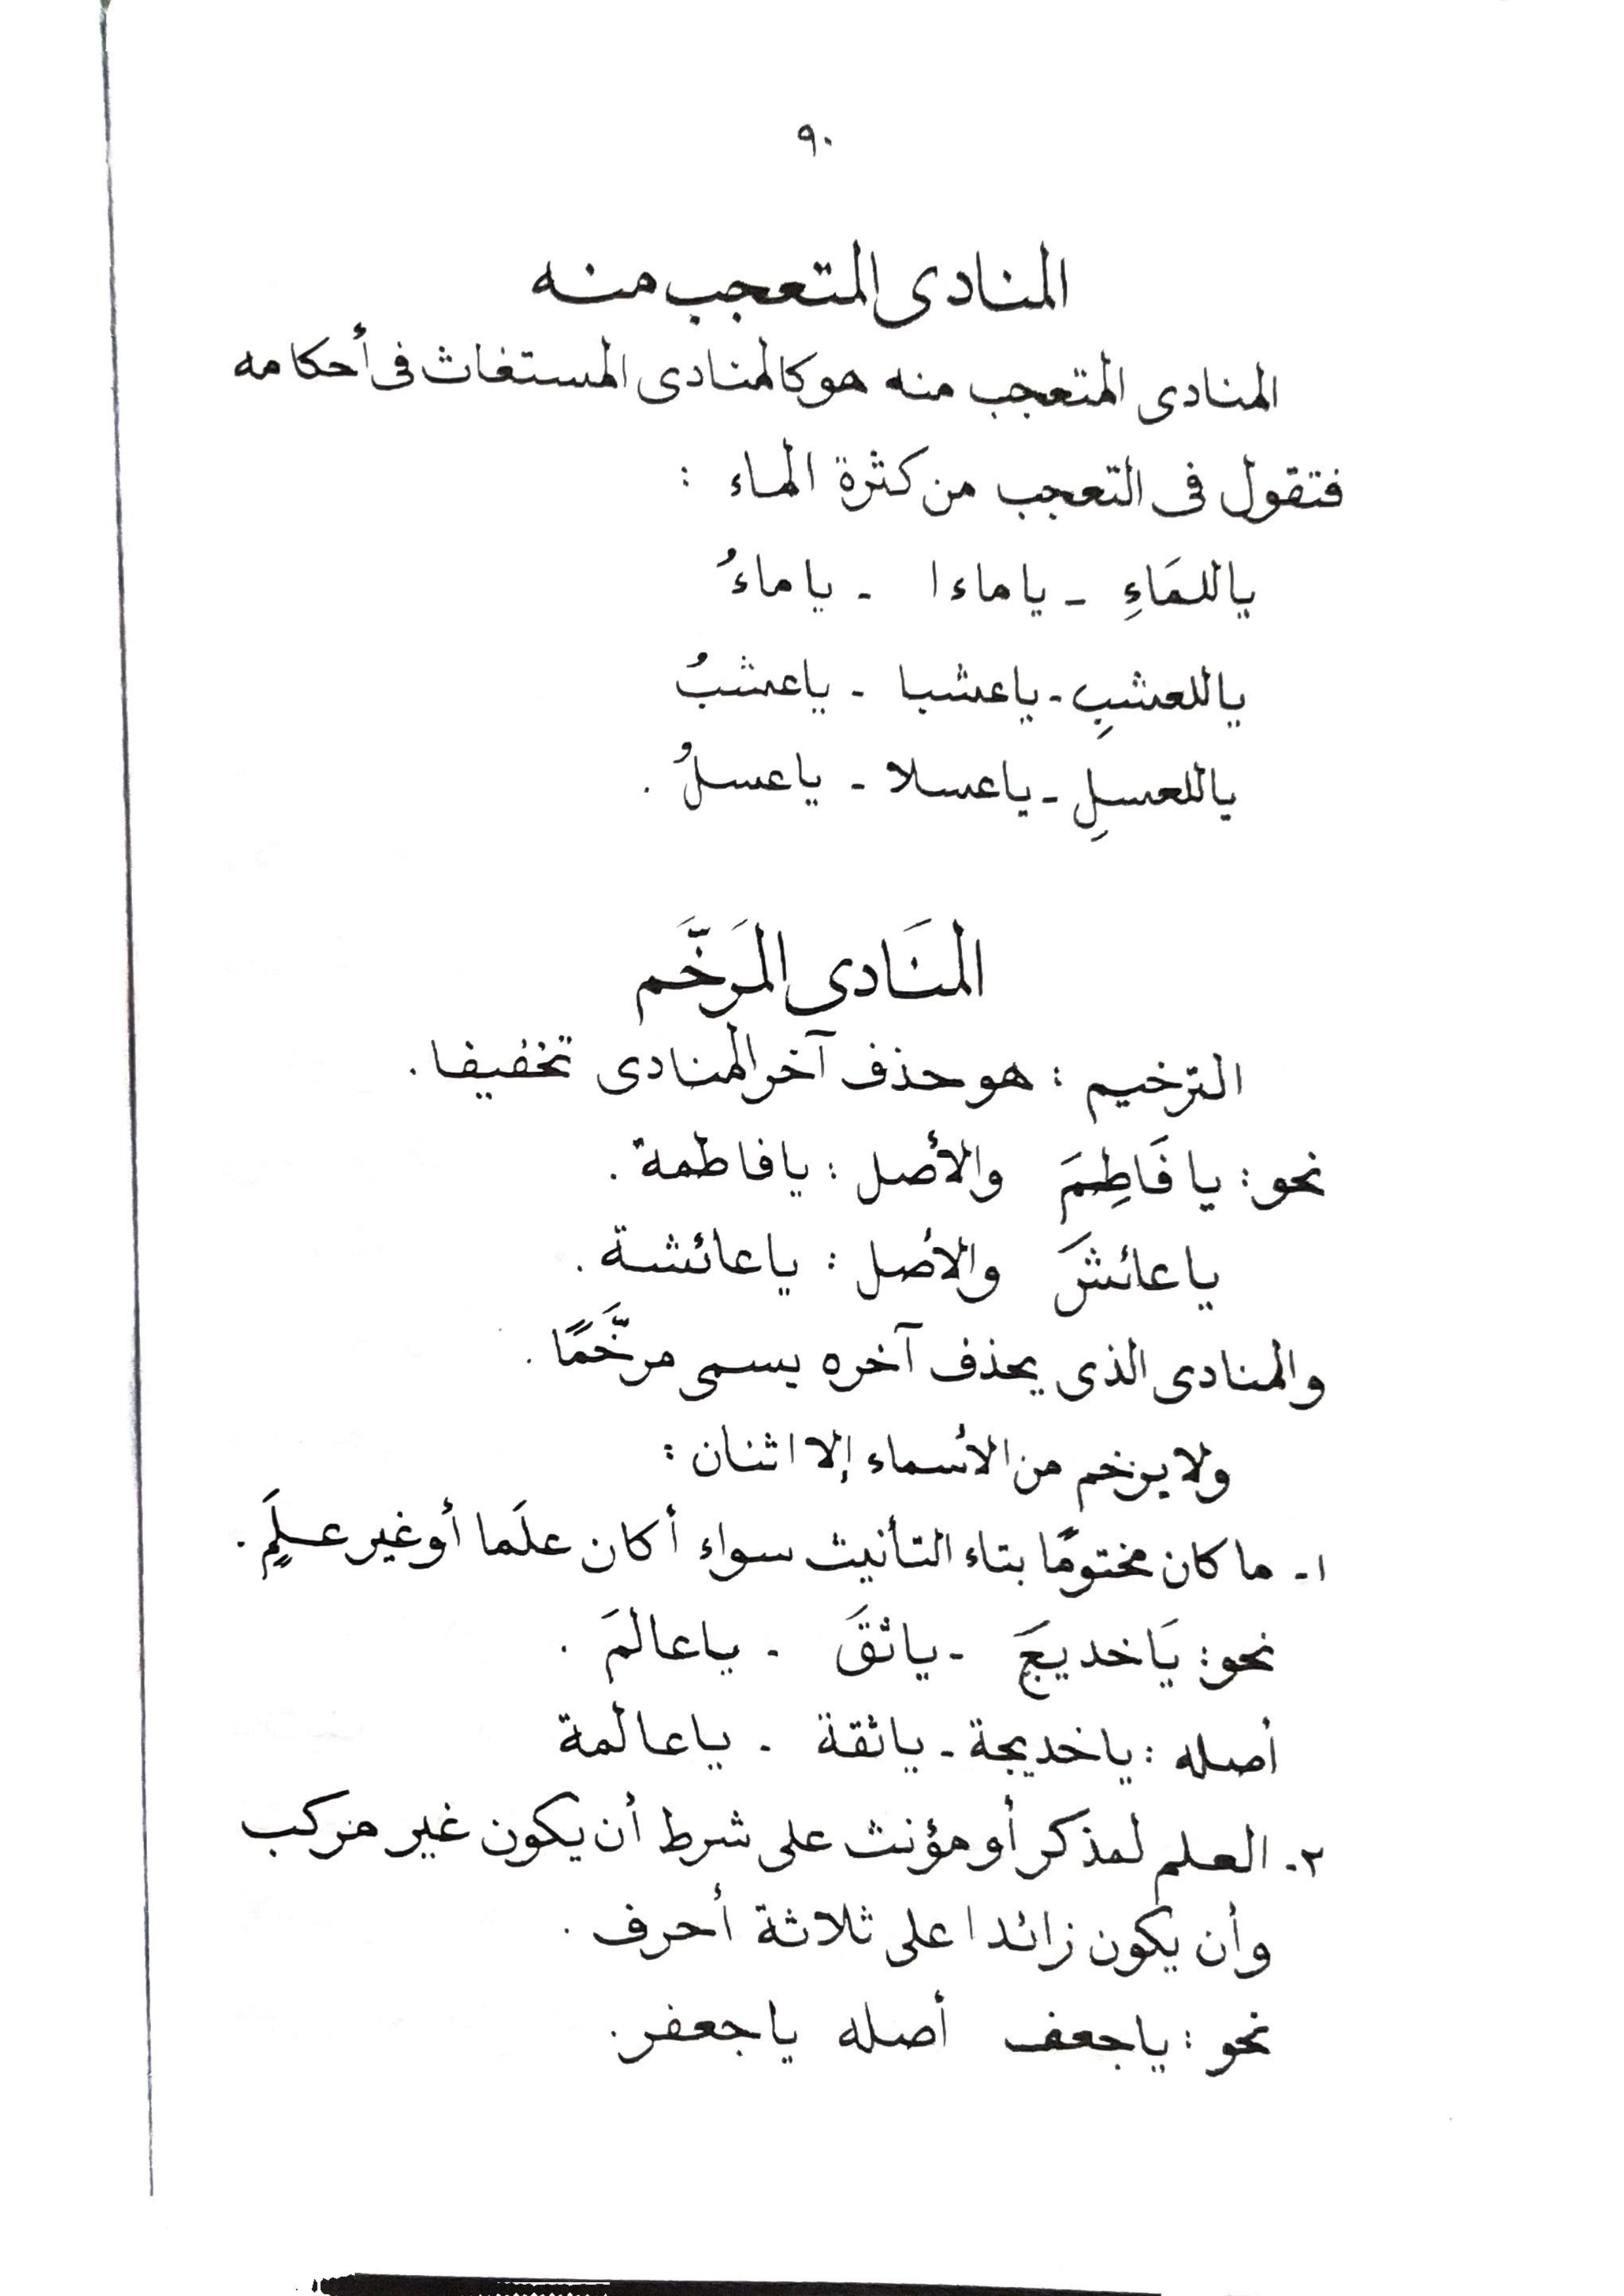 ٩٠
المنادى المتعجب منه
المنادى المتعجب منه هو كالمنادى المستغاث فى أحكامه
فتقول فى التعجب من كثرة الماء :
ياللمَاءِ ـ ياماءا ـ ياماءُ
ياللعشبِ ـ ياعشبا ـ ياعشبُ
ياللعسلِ ـ ياعسلا ـ ياعسلُ .
المنَادى المرَخَّم
الترخيم : هو حذف آخر المنادى تخفيفا .
نحو : يا فَاطِمَ والأصل : يافاطمة .
ياعائشَ والأصل : ياعائشة .
والمنادى الذى يحذف آخره يسمى مرخَّمًا .
ولا يرخم من الأسماء إلا اثنان :
١ـ ما كان مختومًا بتاء التأنيث سواء أكان علَما أو غير علَمٍ .
نحو : يَاخديجَ ـ ياثقَ ـ ياعالمَ .
أصله : ياخديجة ـ ياثقة ـ ياعالمة
٢ـ العلم لمذكر أو مؤنث على شرط أن يكون غير مركب
وأن يكون زائدا على ثلاثة أحرف .
نحو : ياجعف أصله ياجعفر .